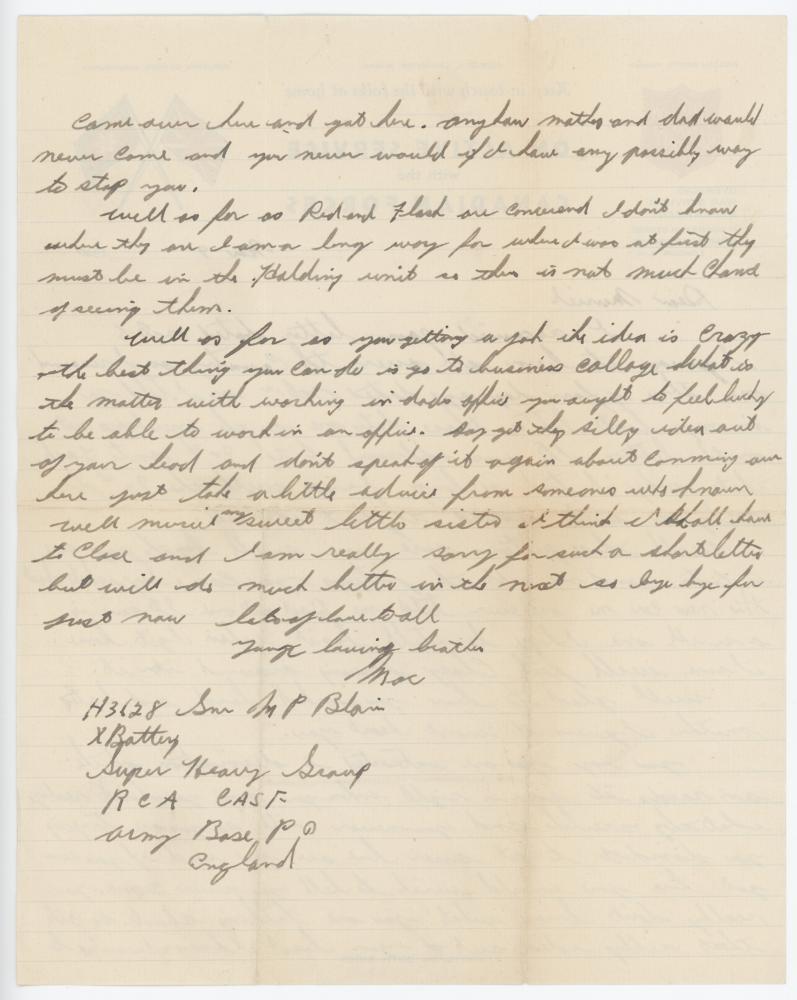 come over here and get here. anyhow mother and dad would
never come and you never would if I have any possibly way
to stop you.
Well as for as Red and Flash are concerned I don't know
where thy are I am a long way for where I was at first thy
must be in the Holding unit so there is not much chance
of seeing them.
Well as for so you getting a job the idea is crazy
the best thing you can do is go to business collage what is
the matter with working in dads office you aught to feel lucky
to be able to work in an office. Say get thy silly idea out
of your head and don't speak of it again about comming over
here just take a little advice from someones who known
well muriel my sweet little sister I think I shall have
to close and I am really sorry for such a short letter
but will do much better in the next so bye bye for
just now lots of love to all
Your loving brother
Mac
H3628 Gnr M P Blair
X Battery
Super Heavy Group
R C A C A S F
Army Base P O
England